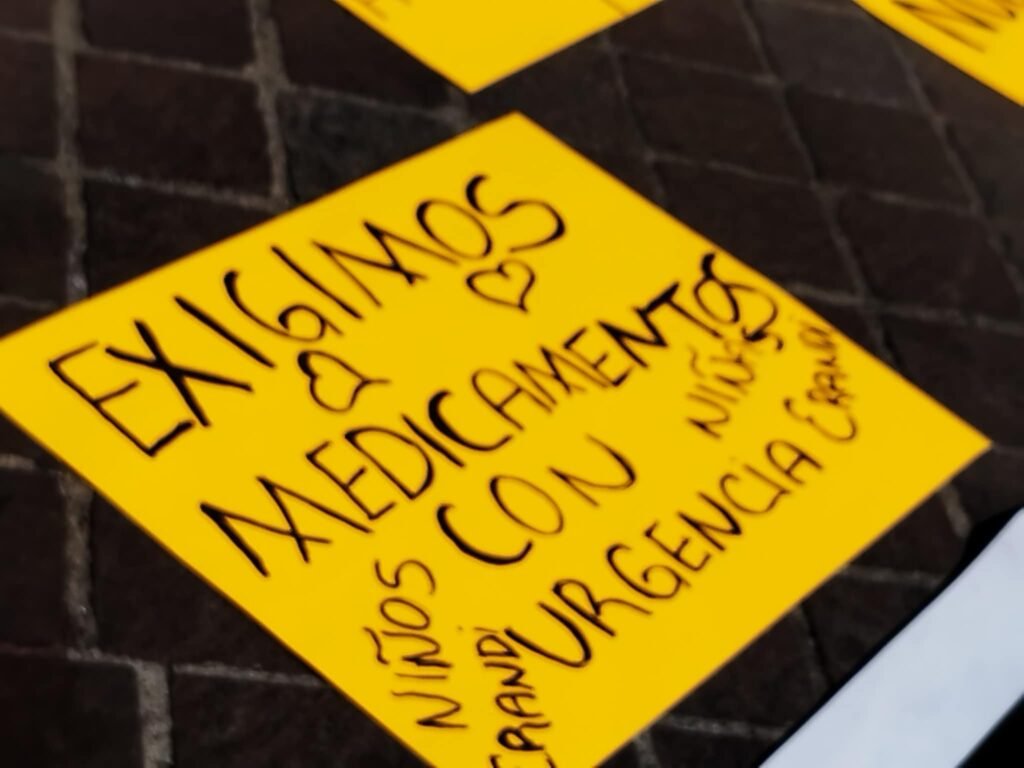 EXIGIMOS
MEDICAMENTOS
CON
URGENCIA
NIÑAS
ERANDI
NIÑOS
ERANDI